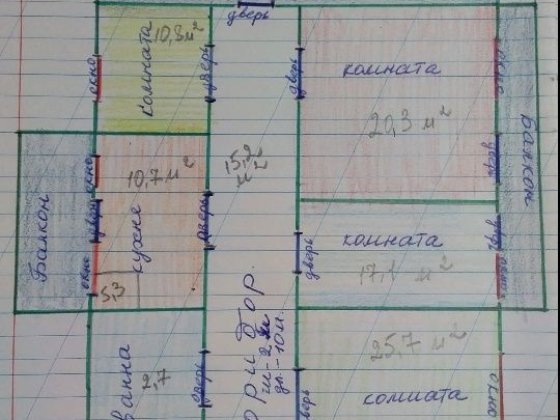 дверь
комната
10,8 м²
окно
дверь
дверь
комната
20,3 м²
окно
дверь
балкон
окно
10,7 м²
кухня
дверь
окно
5,3
Балкон
дверь
15,2
м²
комната
17,1 м²
дверь
дверь
окно
ванна
2,7
дверь
ш-2м
дл-10м.
25,7 м²
комната
дверь
окно